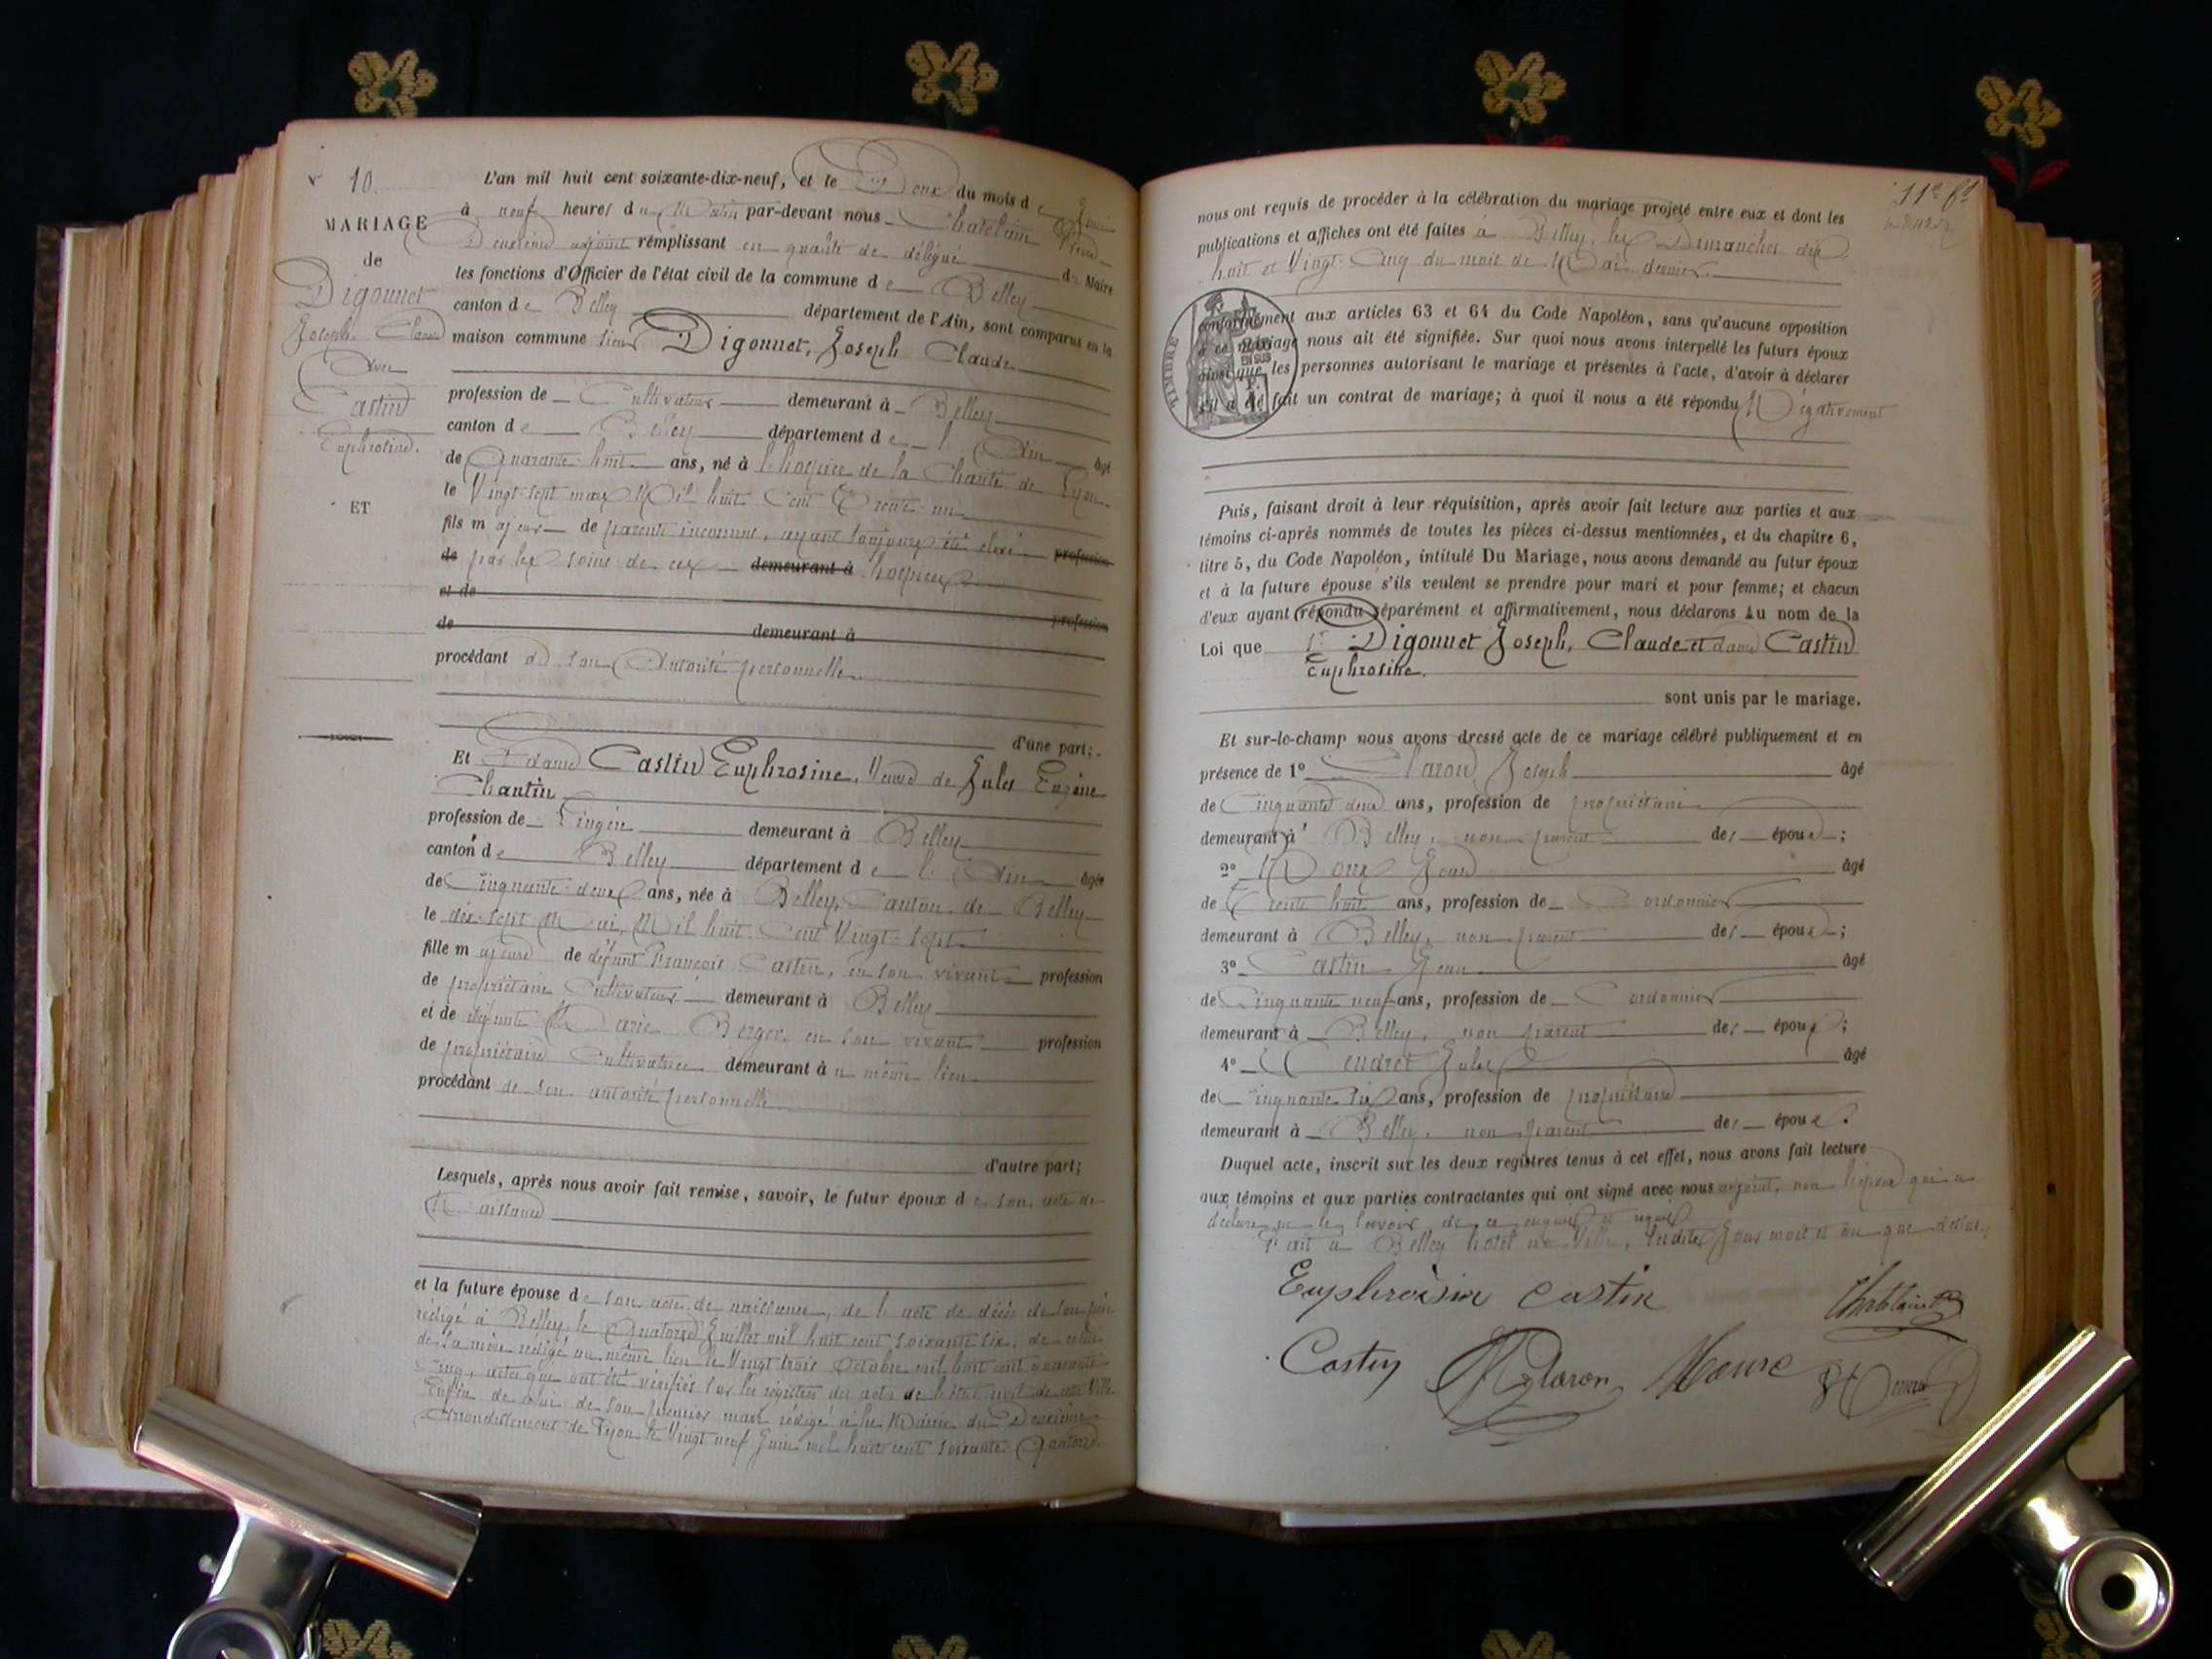 N° 10.
MARIAGE
de
Digonnet
Joseph Claude
Avec
Castin
Euphrosine.
ET
L'an mil huit cent soixante-dix-neuf, et le Deux du mois de Juin
à neuf heures du Matin par-devant nous Chatelain
Deuxième adjoint remplissant en qualité de délégué du Maire
les fonctions d'Officier de l'état civil de la commune de Belley
canton de Belley département de l'Ain, sont comparus en la
maison commune sieur Digonnet, Joseph Claude
profession de Cultivateur demeurant à Belley
canton de Belley département de l'Ain âgé
de Quarante huit ans, né à l'hospice de la Charité de Lyon
le Vingt sept mars Mil huit Cent Trente un
fils majeur de parents inconnus, ayant toujours été élevé profession
de par les soins de ces demeurant à hospices
et de
de demeurant à profession
procédant de son Autorité personnelle
d'une part;
Et dame Castin Euphrosine, Veuve de Jules Eugène
Chantin
profession de Lingère demeurant à Belley
canton de Belley département de l'Ain âgée
de Cinquante deux ans, née à Belley, Canton de Belley
le dix-sept Mai, Mil huit Cent Vingt-sept
fille majeure de défunt François Castin, en son vivant profession
de propriétaire Cultivateur demeurant à Belley
et de défunte Marie Berger, en son vivant profession
de propriétaire Cultivatrice demeurant au même lieu
procédant de son autorité personnelle
d'autre part;
Lesquels, après nous avoir fait remise, savoir, le futur époux de son acte de
Naissance
et la future épouse de son acte de naissance, de l'acte de décès de son père
rédigé à Belley le Quatorze Juillet mil huit cent soixante six, de celui
de sa mère rédigé au même lieu le Vingt trois Octobre mil huit cent quarante
Cinq, actes que ont été vérifiés sur les registres des actes de l'état civil de cette Ville
Enfin de celui de son premier mari rédigé à la Mairie du Deuxième
Arrondissement de Lyon le Vingt neuf Juin mil huit cent soixante Quatorze
11e ft
nous ont requis de procéder à la célébration du mariage projeté entre eux et dont les
publications et affiches ont été faites à Belley, les Dimanches dix
huit et Vingt-Cinq du mois de Mai dernier.
TIMBRE
EN SUS
conformément aux articles 63 et 64 du Code Napoléon, sans qu'aucune opposition
à ce mariage nous ait été signifiée. Sur quoi nous avons interpellé les futurs époux
ainsi que les personnes autorisant le mariage et présentes à l'acte, d'avoir à déclarer
s'il a été fait un contrat de mariage; à quoi il nous a été répondu Négativement
Puis, faisant droit à leur réquisition, après avoir fait lecture aux parties et aux
témoins ci-après nommés de toutes les pièces ci-dessus mentionnées, et du chapitre 6,
titre 5, du Code Napoléon, intitulé Du Mariage, nous avons demandé au futur époux
et à la future épouse s'ils veulent se prendre pour mari et pour femme; et chacun
d'eux ayant répondu séparément et affirmativement, nous déclarons Au nom de la
Loi que Sr Digonnet Joseph, Claude et dame Castin
Euphrosine.
sont unis par le mariage.
Et sur-le-champ nous avons dressé acte de ce mariage célébré publiquement et en
présence de 1° Claron Joseph âgé
de Cinquante deux ans, profession de propriétaire
demeurant à Belley, non parent des époux;
2° Jean âgé
de Trente huit ans, profession de Cordonnier
demeurant à Belley, non parent des époux;
3° Castin Jean âgé
de Cinquante neuf ans, profession de Cordonnier
demeurant à Belley, non parent des époux;
4° Jules âgé
de Cinquante six ans, profession de propriétaire
demeurant à Belley, non parent des époux.
Duquel acte, inscrit sur les deux registres tenus à cet effet, nous avons fait lecture
aux témoins et aux parties contractantes qui ont signé avec nous adjoint, non l'époux qui a
déclaré ne le savoir de ce enquis et requis
Fait à Belley hôtel de Ville, lesdits Jour mois et an que dessus.
Euphroisine Castin
Chatelain
Castin Claron